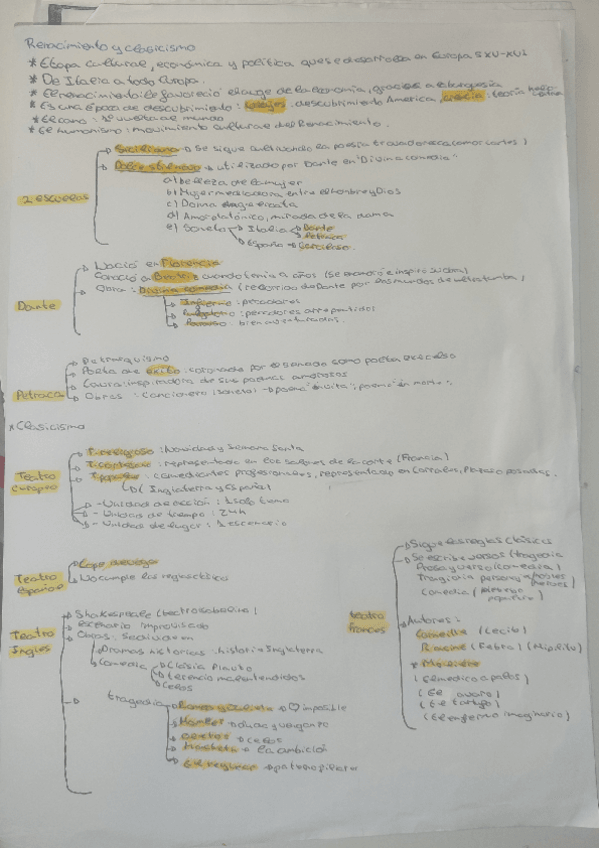 Renacimiento y clasicismo
* Etapa cultural, económica y política que se desarrolla en Europa SXV-XVI
* De Italia a toda Europa.
* El renacimiento se favoreció el auge de la economía, gracias a la burguesía
* Es una época de descubrimiento: descubrimiento America, ciencia: teoría
mundo
* El humanismo: movimiento cultural del Renacimiento.
2 escuelas
Siciliana → Se sigue cultivando la poesía trovadoresca como cortes)
Dolce stilnovo → utilizado por Dante en "Divina comedia"
a) belleza de la mujer
b) Mujer mediadora entre el hombre y Dios
c) Donna angelicata
d) Amor platónico, mirada de la dama
e) Soneto → Italia → Dante
→ Petrarca
España → Garcilaso
Dante
Nació en Florencia
Conoció en cuando tenía 9 años (Se enamoró e inspiro su obra)
Obra: Divina comedia (recorrido de Dante por los mundos de ultratumba)
Infierno: pecadores
Purgatorio: pecadores arrepentidos
Paraiso: bienaventurados.
Petraca
Petrarquismo
Poeta de exito: coronado por el senado como poeta
Laura: inspiradora de sus poemas amorosos
Obras: Cancionero (sonetos) →
* Clasicismo
Teatro europeo
T. religioso: Navidad y Semana Santa
: representado en los salones de la corte (Francia)
T. popular: comediantes profesionales, representado en corrales, patio o posadas.
(Inglaterra y España)
- Unidad de acción: 1 solo tema
- Unidad de tiempo: 24h
- Unidad de lugar: 1 escenario
Teatro Español
Lope de vega
No cumple las reglas clásicas
Teatro Ingles
Shakespeare (teatro isabelino)
Escenario improvisado
Obras: Se dividen en
Dramas historicos: historia Inglaterra
Comedia → Clásia Plauto
Terencia malentendidos
celos
tragedia → Romeo y Julieta → ♡ imposible
Hamlet → dudas y venganza
→ celos
Macbeth → la ambición
El rey Lear →
teatro frances
Sigue las reglas clásicas
Se escribe versos (tragedia
Prosa y verso (comedia)
Tragedia personajes nobles
Comedia (
Autores:
Corneille (Le cid)
Racine (Fedra) (Hipólito)
* Moliere
(El medico a palos)
(El avaro)
(El tartufo)
(El enfermo imaginario)